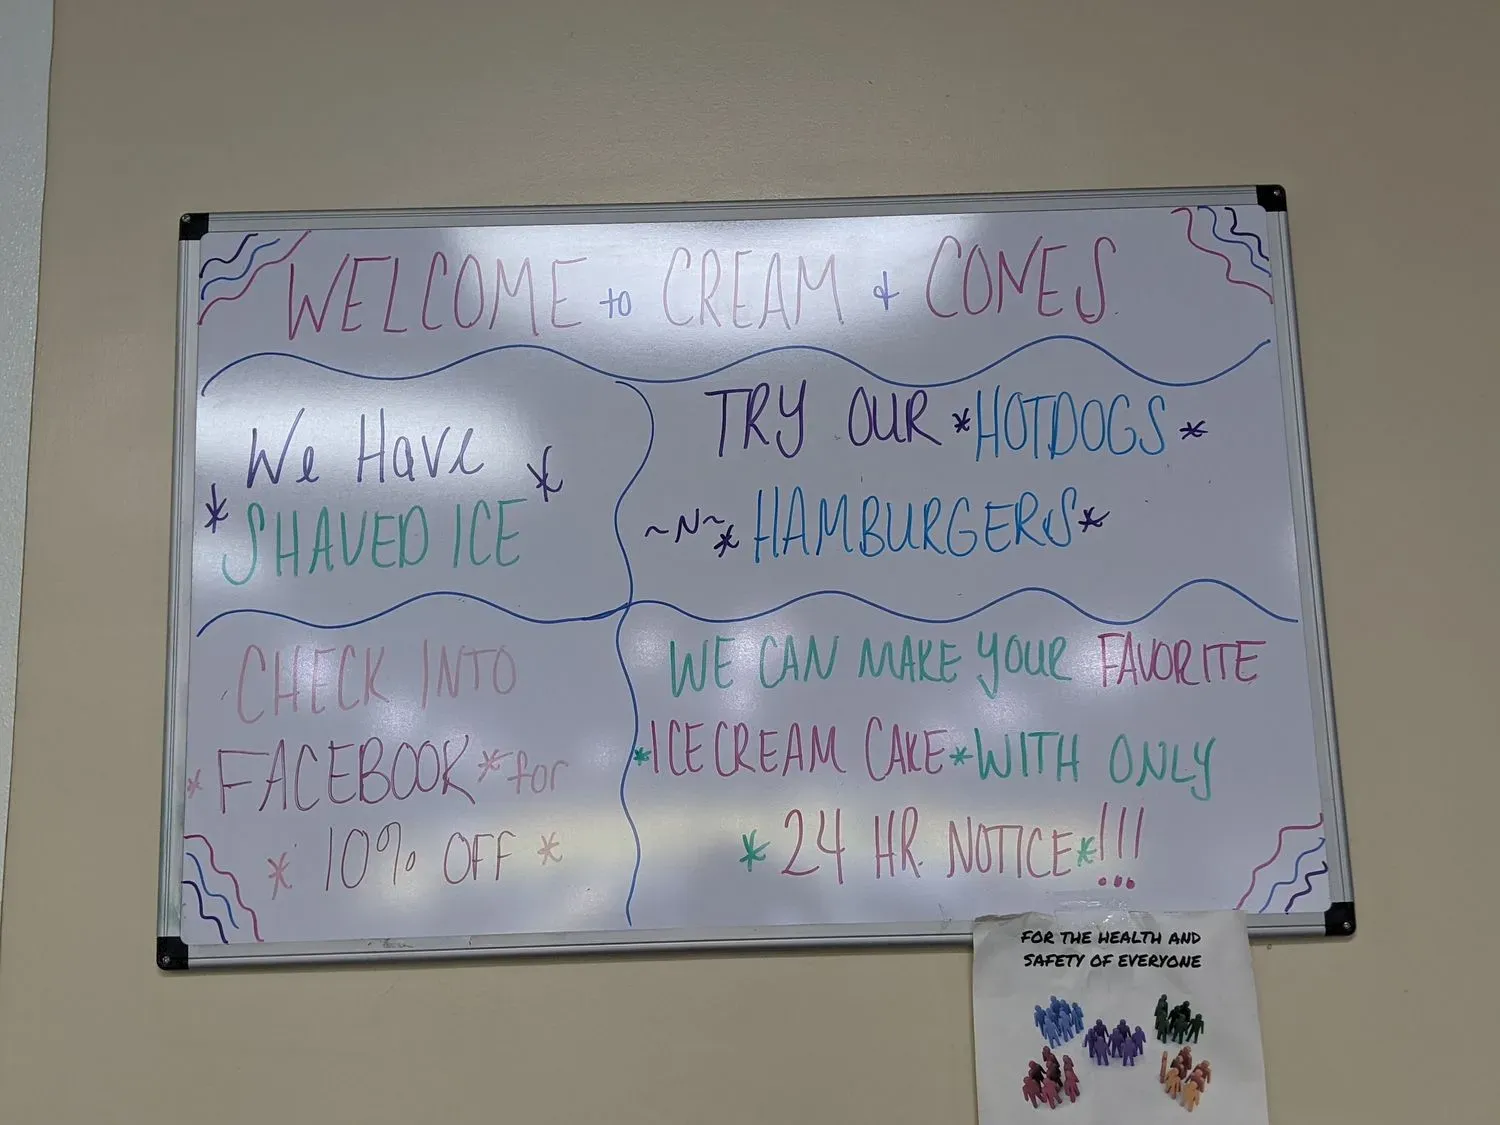 WELCOME to CREAM & CONES
We Have
* SHAVED ICE *
TRY OUR *HOTDOGS *
~N~ * HAMBURGERS*
CHECK INTO
* FACEBOOK * for
* 10% OFF *
WE CAN MAKE YOUR FAVORITE
*ICE CREAM CAKE* WITH ONLY
* 24 HR. NOTICE*!!!
FOR THE HEALTH AND
SAFETY OF EVERYONE